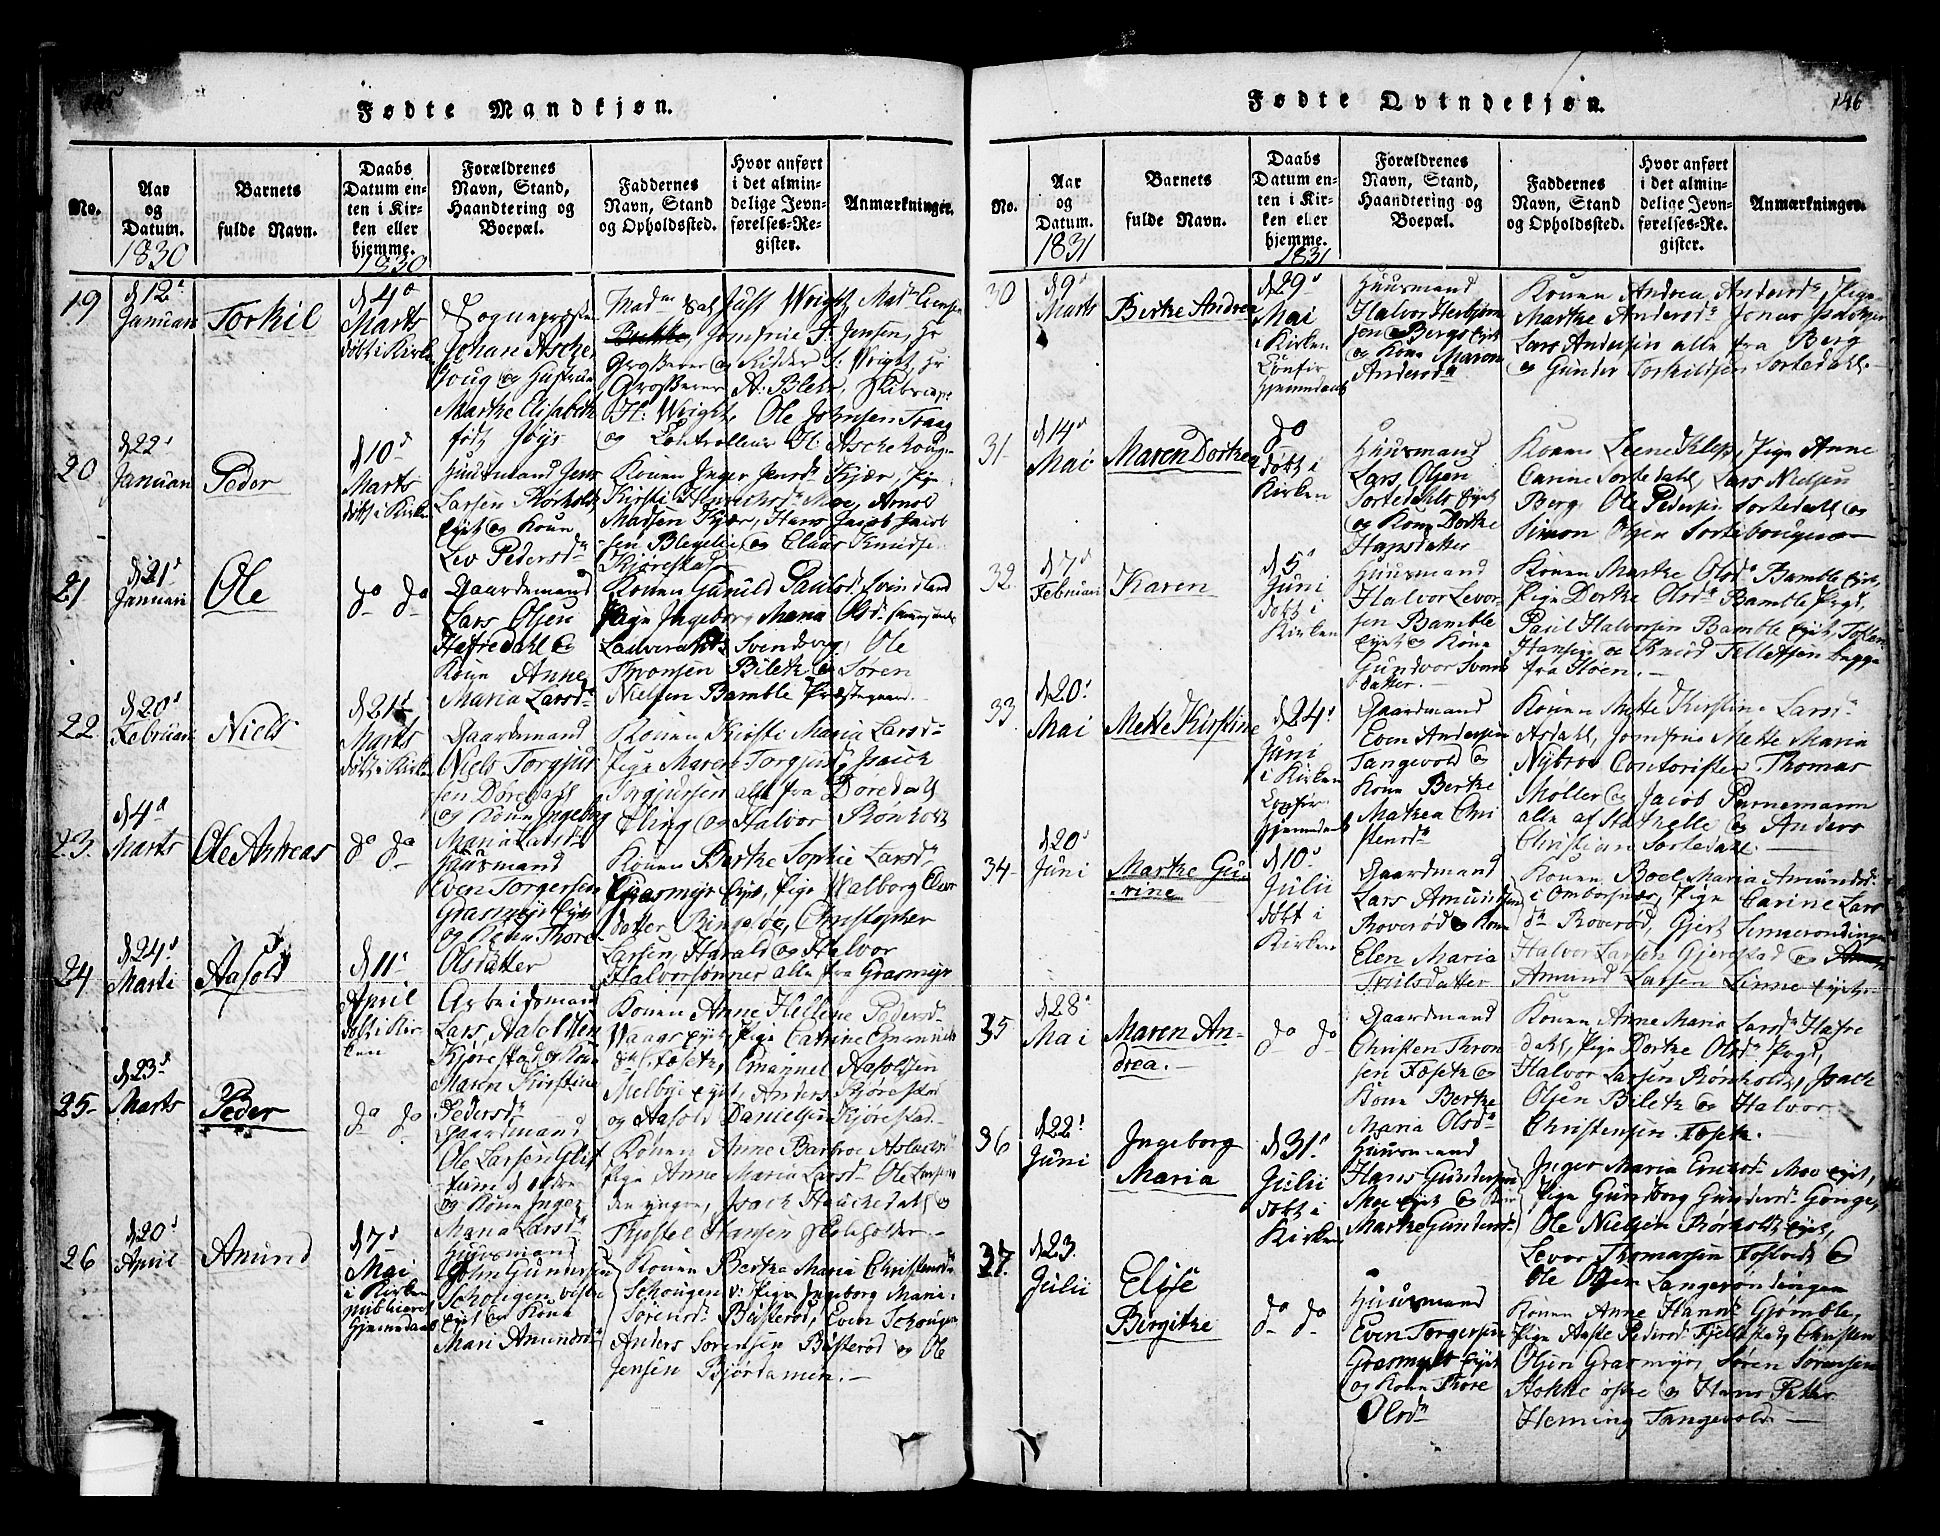 Fødte Mandkjøn.
No.
Aar
og
Datum.
1830
Barnets
fulde Navn.
Daabs
Datum en-
ten i Kir-
ken eller
hjemme.
1830
Forældrenes
Navn, Stand,
Haandtering og
Boepæl.
Faddernes
Navn, Stand
og Opholdssted.
Hvor anført
i det almin-
delige Jevn-
førelses-Re-
gister.
Anmærkninger.
19
d 12te
Januari
Torkil
d 4de
Marts
døbt i Kirk
Sognepræst
Johan Asche
houg og Hustrue
Marthe Elisabeth
født Jøys
Jomfrue F. Jensen, Hr
Grosserer og Ridder J. Wright, Hr
Grosserer A: Blehr
H: Wright, Ole Johnsen Traag
og Controlleur H: Aschehoug
20
d 22
Januari
Peder
d 10de
Marts
døbt i Kirken
Huusmand Jens
Larsen Rørholt
Eyet og Koun
Lev Pedersdr
Kouen Inger Jensdr Kjær, Pig
Kirsti Hendrichsdr Moe, Arnol
Madsen Kjær, Hans Jacob Jacob
sen Blegelie og Claus Knudse
Kjørestad
21
d 21de
Januari
Ole
do do
Gaardemand
Lars Olsen
Hafredahl og
Koun Anne
Maria Larsdr
Kouen Gunild Paulsd. Svindland
Pige Ingeborg Maria Olsdr
Svendsvog, Ole
Thronsen Bilet og Søren
Nielsen Bamble Præstegaard.
22
d 20de
Februari
Niels
d 21de
Marts
døbt i Kirk
Gaardemand
Niels Torgjus
sen Døredahl
og Koun Ingeborg
Maria Larsdr
Kouen Kirsti Maria Larsdr
Pige Maren Torgjusd, Isack
Torgjussen alle fra Døredahl
Elling og Halvor Rønholt
23.
d 4de
Marts
Ole Andreas
do do
Huusmand
Even Torgersen
Grasmyr Eyet
og Koun Thore
Olsdatter
Kouen Berthe Sophie Larsdr
Grasmyr Eyet, Pige Walborg Elver
datter Bingsøe, Christopher
Larsen, Harald og Halvor
Halvorsønner alle fra Grasmyr
24
d 24de
Marti
Aasold
d 11te
April
døbt i Kir-
ken
Arbeidsmand
Lars Aasoldsen
Kjørestad og Koun
Maren Kirstine
Pedersdr
Kouen Anne Hellene Pedersdr
Waage Eyet, Pige Catrine Emanuels
dtr Fosete, Emanuel Aasoldsen
Melbye eyet, Anders Kjørestad
og Aasold Danielsen Kjørestad
25
d 23de
Marts
Peder
do do
Gaardemand
Ole Larsen
og Koun Inger
Maria Larsdr
Kouen Anne Barbroe Aslachs
Pige Anne Maria Larsd. Ole Larsen
den yngre, Isach Hauckedahl og
Kjøstel Hansen
26
d 20de
April
Amund
d 7de
Mai
i Kirken
publiceret
hjemmedaab
Huusmand
John Gunersen
Schougen vestre
Eyet og Koun
Mari Amundsdr
Kouen Berthe Maria Christensdr
Schougen v: Pige Ingeborg Maria
Sørensdr Bústerød, Even Schougen
Anders Sørensen Bústerød og Ole
Jensen Bjørdamen.
146
Fødte Qvindekjøn.
No.
Aar
og
Datum.
1831
Barnets
fulde Navn.
Daabs
Datum en-
ten i Kir-
ken eller
hjemme.
1831
Forældrenes
Navn, Stand,
Haandtering og
Boepæl.
Faddernes
Navn, Stand
og Opholdssted.
Hvor anført
i det almin-
delige Jevn-
førelses-Re-
gister.
Anmærkninger.
30
d 9de
Marts
Berte Andrea
d 29de
Mai
i Kirken
Confir.
hjemmedaab
Huusmand
Halvor Herbjørn
sen Bergs Eyet
og Koun Maren
Andersdr
Kouen Andrea Andersdr, Pige
Marthe Andersdr Jonas Isachsen
Lars Andersen alle fra Berg
og Gunder Torkildsen Sortedahl.
31
d 14de
Mai
Maren Dorthea
do
døbt i
Kirken
Huusmand
Lars Olsen
Sortedahls Eyet
og Koun Dorthe
Hansdatter
Kouen Leene Klep, Pige Anne
Carine Sortedahl, Lars Nielsen
Berg, Ole Pedersen Sortedahl og
Simon Olsen Sortebougen
32.
d 7de
Februari
Karen
d 5te
Juni
døbt i
Kirken
Huusmand
Halvor Levor-
sen Bamble
Eyet og Koun
Gundvor Svends
datter.
Kouen Marthe Olsdr Bamble Eyet,
Pige Dorthe Olsdr Bamble Prgd,
Paul Halvorsen Bamble Eyet,
Hansen og Knud Tellefsen begge
fra Høen.
33
d 20de
Mai
Mette Kirstine
d 24de
Juni
i Kirken
Confir.
hjemmedaab
Gaardmand
Even Andersen
Tangevold og
Koun Berthe
Mathea Chri
stensdr
Kouen Mette Kirstine Larsdr
Asdahl, Jomfrue Mette Maria
Nybroe, Contorister Thomas
Møller og Jacob Parnemann
alle af Stathelle og Anders
Christian Sortedahl.
34
d 20de
Juni
Marthe Gu-
rine
d 10de
Julii
døbt i
Kirken
Gaardmand
Lars Amundsen
Roverød og Koun
Elen Maria
Truilsdatter
Kouen Boel Maria Amundsd.
i Ombordsnes, Pige Carine Lars
dr Roverød, Gjert Linnerondingen
Halvor Larsen Gjerstad og
Amund Larsen Linne Eyet.
35
d 28de
Mai
Maren An-
drea.
do do
Gaardmand
Christen Thron
sen Fosete og
Koun Berthe
Maria Olsdr
Kouen Anne Maria Larsdr Hafre
dahl, Pige Dorthe Olsdr Prgd,
Halvor Larsen Rønholt, Isach
Olsen Bilet og Halvor
Christensen Fosete.
36
d 22de
Juni
Ingeborg
Maria
d 31te
Julii
døbt i
Kirken
Huusmand
Hans Gundersen
Moe Eyet og Koun
Marthe Gundersd
Inger Maria Ericsdr Moe Eyet,
Pige Gunborg Gundersdr Gonge,
Ole Nielsen Rørholt Eyet,
Levor Thomassen Fosvold og
Ole Olsen Langerondingen
37.
d 23
Julii
Elise
Bergithe
do do
Huusmand
Even Torgersen
Grasmyr Eyet
og Koun Thore
Olsdr
Kouen Anne Hansdr Grømble,
Pige Aaste Pedersd Fjellstad, Christen
Olsen Grasmyr, Søren Sørensen
Stokke østre og Hans Petter
Heming Tangevold.